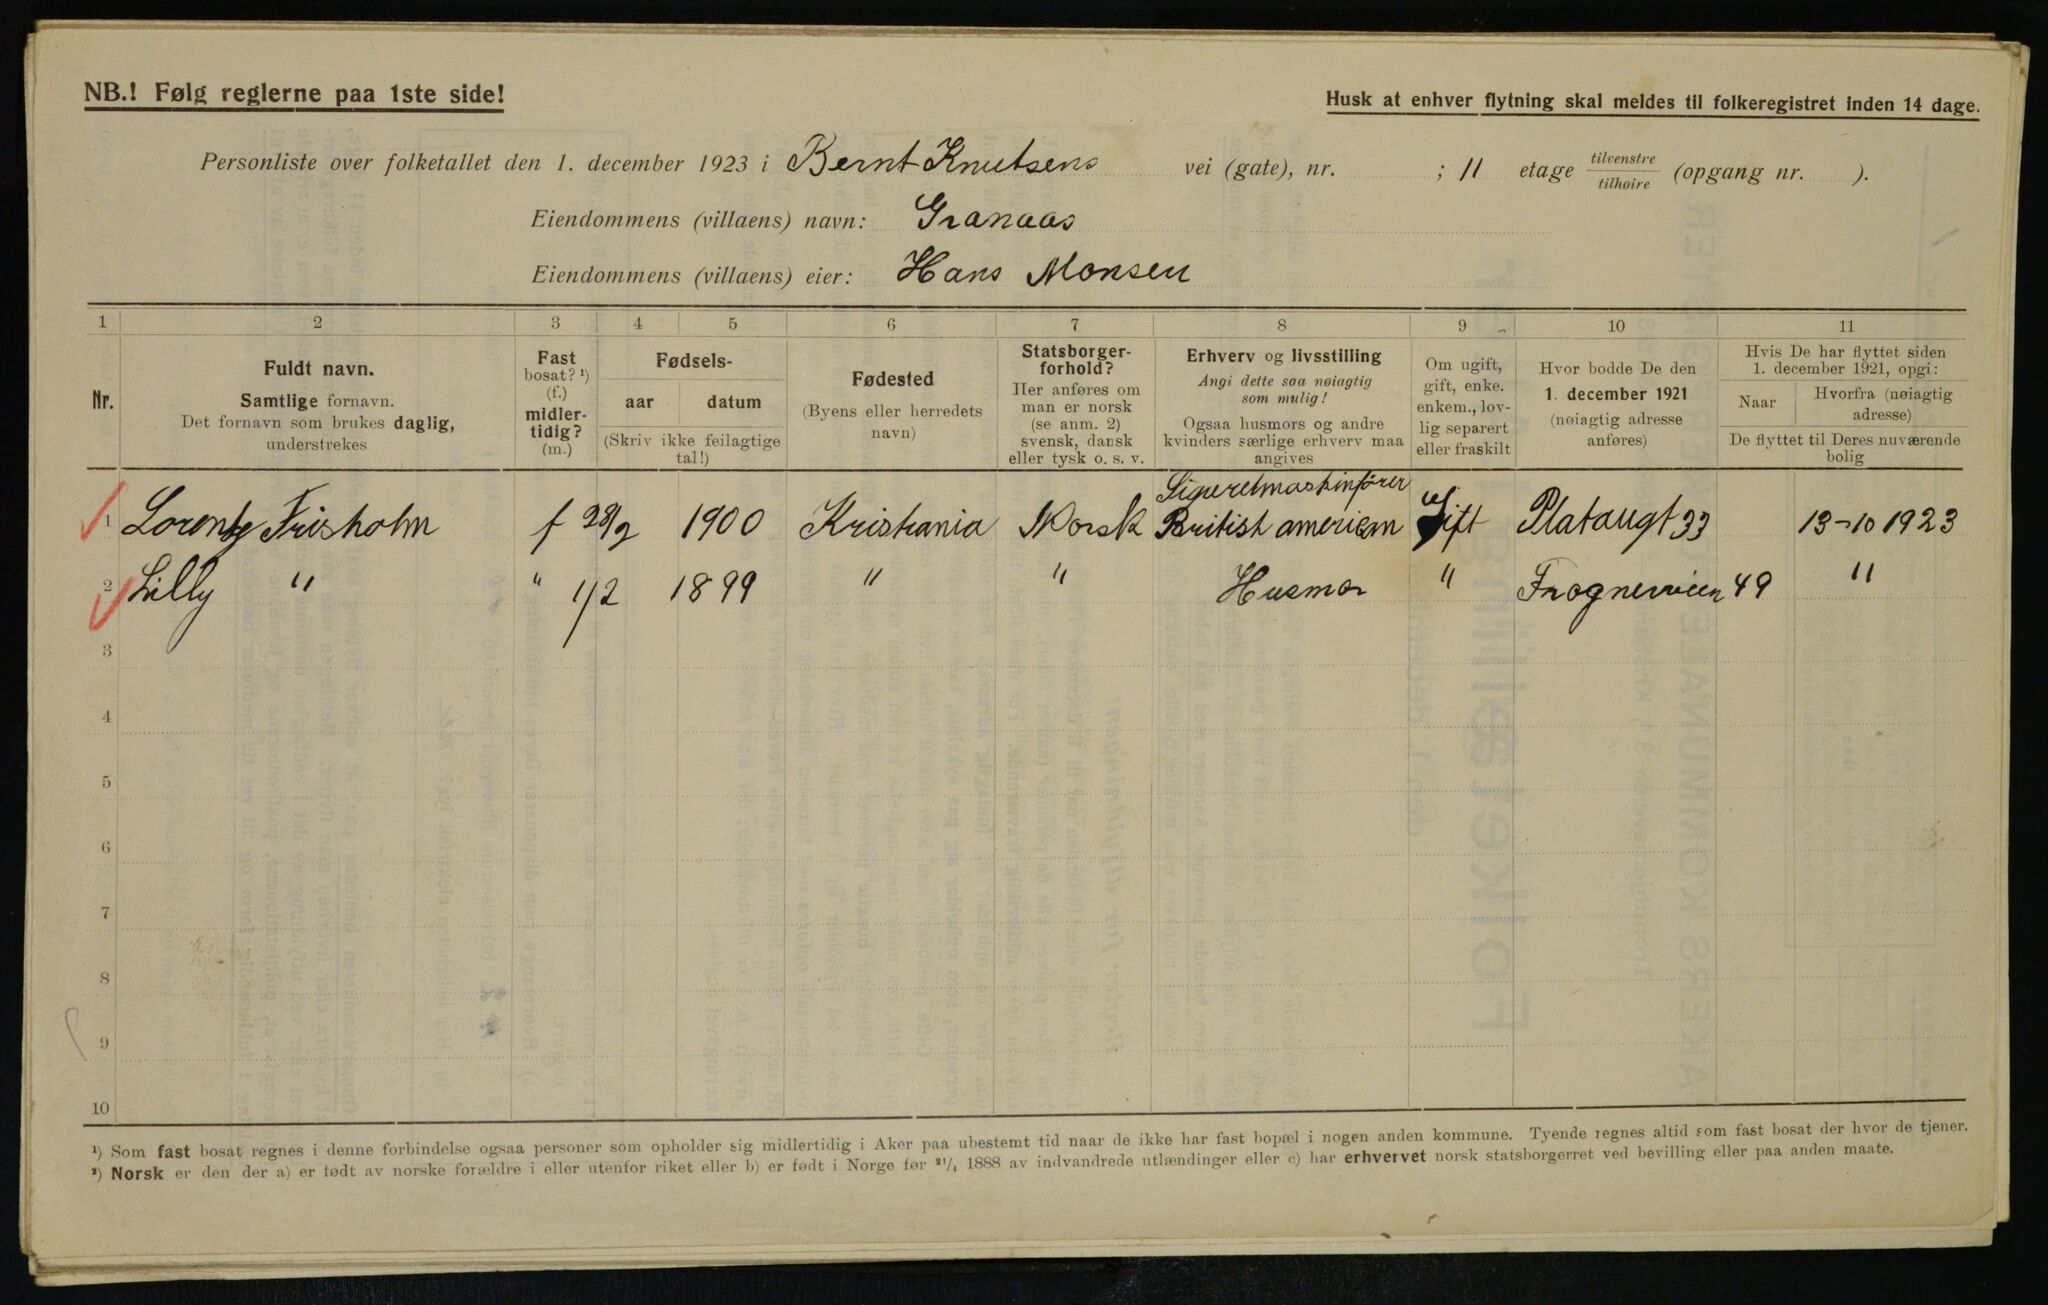 NB.! Følg reglerne paa 1ste side!
Husk at enhver flytning skal meldes til folkeregistret inden 14 dage.
Personliste over folketallet den 1. december 1923 i Bernt Knutsens vei (gate), nr. ; 11 etage tilvenstre/tilhøire (opgang nr. ).
Eiendommens (villaens) navn: Granaas
Eiendommens (villaens) eier: Hans Monsen
1 2 3 4 5 6 7 8 9 10 11
Nr.
Fuldt navn.
Samtlige fornavn.
Det fornavn som brukes daglig,
understrekes
Fast
bosat? ¹)
(f.)
midler-
tidig?
(m.)
Fødsels-
aar datum
(Skriv ikke feilagtige
tal!)
Fødested
(Byens eller herredets
navn)
Statsborger-
forhold?
Her anføres om
man er norsk
(se anm. 2)
svensk, dansk
eller tysk o. s. v.
Erhverv og livsstilling
Angi dette saa nøiagtig
som mulig!
Ogsaa husmors og andre
kvinders særlige erhverv maa
angives
Om ugift,
gift, enke.
enkem., lov-
lig separert
eller fraskilt
Hvor bodde De den
1. december 1921
(nøiagtig adresse
anføres)
Hvis De har flyttet siden
1. december 1921, opgi:
Naar
Hvorfra (nøiagtig
adresse)
De flyttet til Deres nuværende
bolig
Sigaretmaskinfører
1 Lorentz Frisholm f 28/2 1900 Kristiania Norsk British american Gift Plataugt 33 13-10 1923
2 Lilly " " 1/2 1899 " " Husmor " Frognerveien 49 "
3
4
5
6
7
8
9
10
¹) Som fast bosat regnes i denne forbindelse ogsaa personer som opholder sig midlertidig i Aker paa ubestemt tid naar de ikke har fast bopæl i nogen anden kommune. Tyende regnes altid som fast bosat der hvor de tjener.
²) Norsk er den der a) er født av norske forældre i eller utenfor riket eller b) er født i Norge før ²¹/₄ 1888 av indvandrede utlændinger eller c) har erhvervet norsk statsborgerret ved bevilling eller paa anden maate.